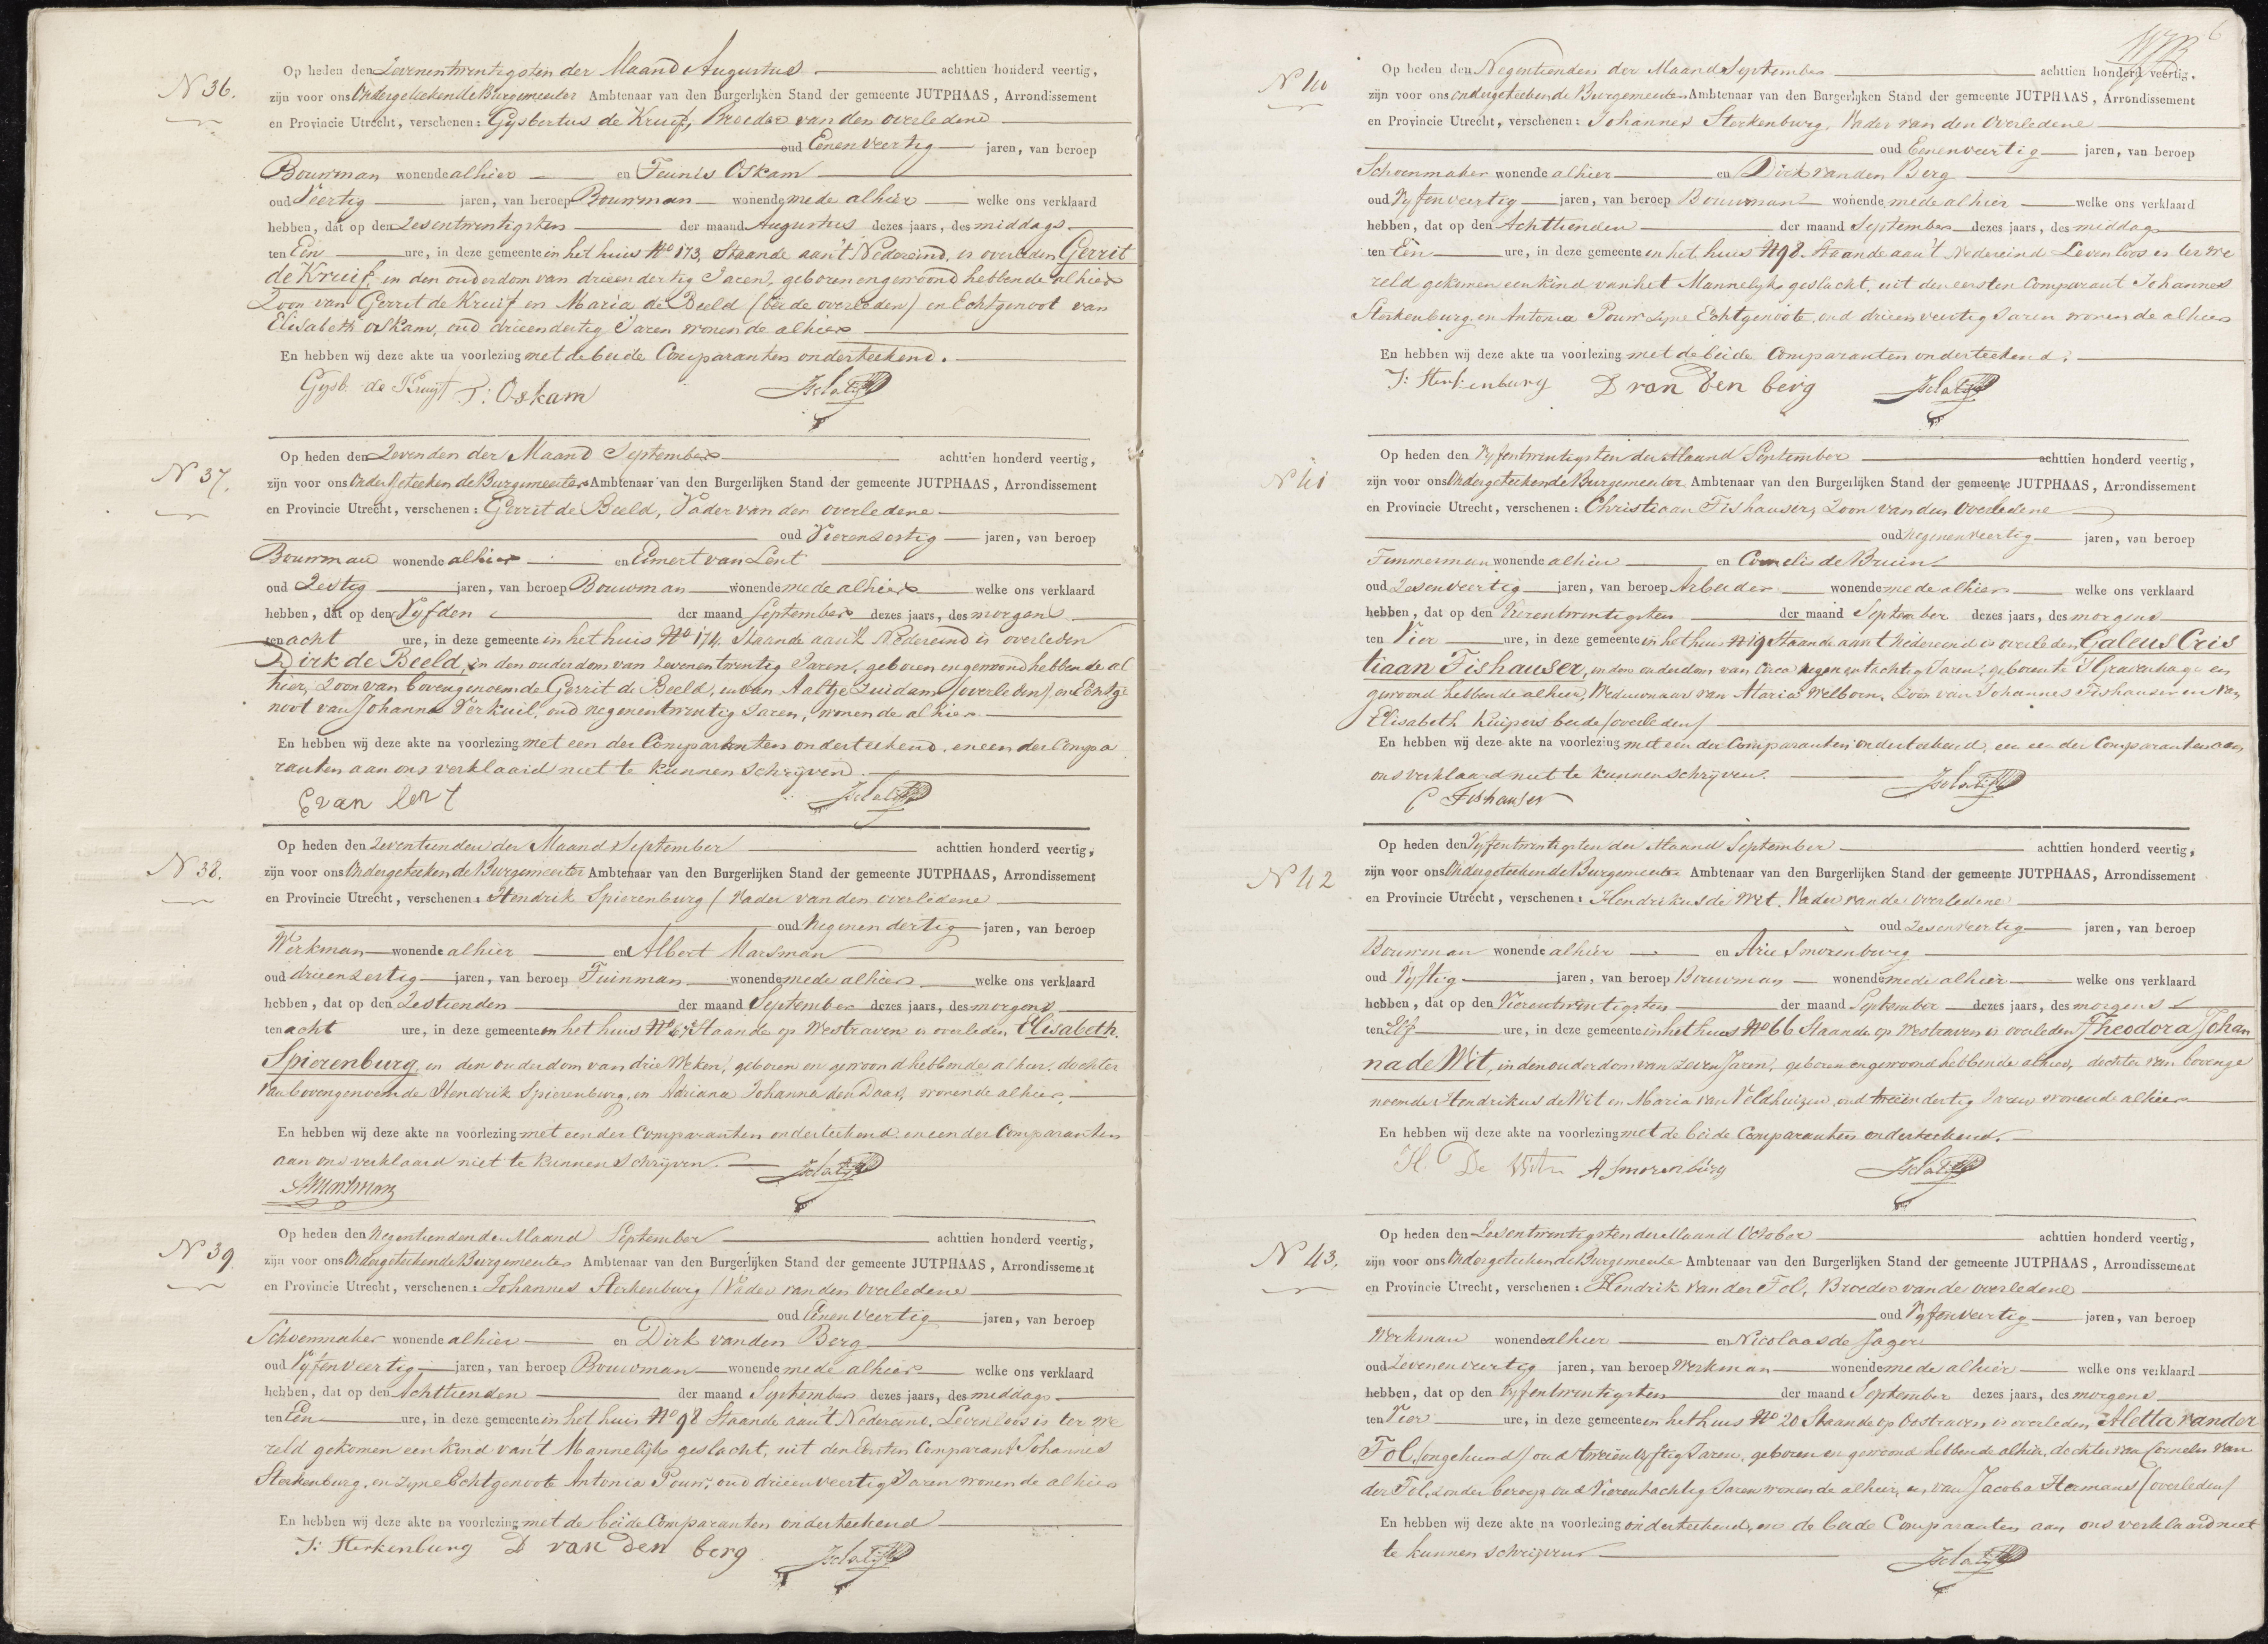 N 36.
Op heden den Zevenentwintigsten der Maand Augustus achttien honderd veertig,
zijn voor ons Ondergeteekende Burgemeester Ambtenaar van den Burgerlijken Stand der gemeente JUTPHAAS, Arrondissement
en Provincie Utrecht, verschenen: Gysbertus de Kruif, Broeder van den overledene
oud Eenenveertig jaren, van beroep
Bouwman wonende alhier en Teunis Oskam
oud Veertig jaren, van beroep Bouwman wonende mede alhier welke ons verklaard
hebben, dat op den Zesentwintigsten der maand Augustus dezes jaars, des middags
ten Een ure, in deze gemeente in het huis No 173, Staande aan 't Nedereind, is overleden Gerrit
de Kruif, in den ouderdom van drieendertig Jaren, geboren en gewoond hebbende alhier
Zoon van Gerrit de Kruif en Maria de Beeld (beide overleden) en Echtgenoot van
Elisabeth Oskam, oud drieendertig Jaren wonende alhier
En hebben wij deze akte na voorlezing met de beide Comparanten onderteekend.
Gysb. de Kruyf T: Oskam
N 37.
Op heden den Zevenden der Maand September achttien honderd veertig,
zijn voor ons Ondergeteekende Burgemeester Ambtenaar van den Burgerlijken Stand der gemeente JUTPHAAS, Arrondissement
en Provincie Utrecht, verschenen: Gerrit de Beeld, Vader van den overledene
oud Vierenzestig jaren, van beroep
Bouwman wonende alhier en Eimert van Lent
oud Zestig jaren, van beroep Bouwman wonende mede alhier welke ons verklaard
hebben, dat op den Vyfden der maand September dezes jaars, des morgens
ten acht ure, in deze gemeente in het huis No 174 Staande aan 't Nedereind is overleden
Dirk de Beeld, in den ouderdom van Zevenentwintig Jaren, geboren en gewoond hebbende al
hier, Zoon van bovengenoemde Gerrit de Beeld, en van Aaltje Zuidam (overleden) en Echtge
noot van Johanna Verkuil, oud negenentwintig Jaren, wonende alhier
En hebben wij deze akte na voorlezing met een der Comparanten onderteekend, en een der Compa
ranten aan ons verklaard niet te kunnen Schrijven.
E van lent
N 38.
Op heden den Zeventienden der Maand September achttien honderd veertig,
zijn voor ons Ondergeteekende Burgemeester Ambtenaar van den Burgerlijken Stand der gemeente JUTPHAAS, Arrondissement
en Provincie Utrecht, verschenen: Hendrik Spierenburg / Vader van den overledene
oud Negenendertig jaren, van beroep
Werkman wonende alhier en Albert Marsman
oud drieenzestig jaren, van beroep Tuinman wonende mede alhier welke ons verklaard
hebben, dat op den Zestienden der maand September dezes jaars, des morgens
ten acht ure, in deze gemeente in het huis No Staande op Westraven is overleden, Elisabeth
Spierenburg, in den ouderdom van drie Weken, geboren en gewoond hebbende alhier, dochter
van bovengenoemde Hendrik Spierenburg, en Adriana Johanna den Daas, wonende alhier.
En hebben wij deze akte na voorlezing met een der Comparanten onderteekend en een der Comparanten
aan ons verklaard niet te kunnen Schrijven.
A Marsman
N 39
Op heden den Negentienden der Maand September achttien honderd veertig,
zijn voor ons Ondergeteekende Burgemeester Ambtenaar van den Burgerlijken Stand der gemeente JUTPHAAS, Arrondissement
en Provincie Utrecht, verschenen: Johannes Sterkenburg / Vader van den overledene
oud Eenenveertig jaren, van beroep
Schoenmaker wonende alhier en Dirk van den Berg
oud Vyfenveertig jaren, van beroep Bouwman wonende mede alhier welke ons verklaard
hebben, dat op den Achttienden der maand September dezes jaars, des middags
ten Een ure, in deze gemeente in het huis No 98 Staande aan 't Nedereind, Levenloos is ter we
reld gekomen een kind van 't Mannelijke geslacht, uit den eersten Comparant Johannes
Sterkenburg, en zyne Echtgenoote Antonia Pouw, oud drieenveertig Jaren wonende alhier
En hebben wij deze akte na voorlezing met de beide Comparanten onderteekend
J: Sterkenburg D van den berg
6
N 40
Op heden den Negentienden der Maand September achttien honderd veertig,
zijn voor ons ondergeteekende Burgemeester Ambtenaar van den Burgerlijken Stand der gemeente JUTPHAAS, Arrondissement
en Provincie Utrecht, verschenen: Johannes Sterkenburg, Vader van den Overledene
oud Eenenveertig jaren, van beroep
Schoenmaker wonende alhier en Dirk van den Berg
oud Vyfenveertig jaren, van beroep Bouwman wonende mede alhier welke ons verklaard
hebben, dat op den Achttienden der maand September dezes jaars, des middags
ten Een ure, in deze gemeente in het huis No 98. Staande aan 't Nedereind Levenloos is ter we
reld gekomen een kind van het Mannelyk geslacht, uit den eersten Comparant Johannes
Sterkenburg, en Antonia Pouw zyne Echtgenoote, oud drieenveertig Jaren wonende alhier
En hebben wij deze akte na voorlezing met de beide Comparanten onderteekend.
J: Sterkenburg D van den berg
N 41
Op heden den Vyfentwintigsten der Maand September achttien honderd veertig,
zijn voor ons Ondergeteekende Burgemeester Ambtenaar van den Burgerlijken Stand der gemeente JUTPHAAS, Arrondissement
en Provincie Utrecht, verschenen: Christiaan Fishauser, Zoon van den Overledene
oud Negenenveertig jaren, van beroep
Timmerman wonende alhier en Cornelis de Bruin
oud Zesenveertig jaren, van beroep Arbeider wonende mede alhier welke ons verklaard
hebben, dat op den Vierentwintigsten der maand September dezes jaars, des morgens
ten Vier ure, in deze gemeente in het huis No 19 Staande aan 't Nedereind is overleden, Galeus Cris
tiaan Fishauser, in den ouderdom van circa negenentachtig Jaren, geboren te 'S Gravenhage en
gewoond hebbende alhier, Weduwnaar van Maria Welboren, Zoon van Johannes Fishauser en van
Elisabeth Kuipers beide (overleden)
En hebben wij deze akte na voorlezing met een der Comparanten onderteekend, en een der Comparanten aan
ons verklaard niet te kunnen schrijven.
C Fishauser
N 42
Op heden den Vyfentwintigsten der Maand September achttien honderd veertig,
zijn voor ons Ondergeteekende Burgemeester Ambtenaar van den Burgerlijken Stand der gemeente JUTPHAAS, Arrondissement
en Provincie Utrecht, verschenen: Hendrikus de Wit. Vader van de overledene
oud Zesenveertig jaren, van beroep
Bouwman wonende alhier en Arie Smorenburg
oud Vyftig jaren, van beroep Bouwman wonende mede alhier welke ons verklaard
hebben, dat op den Vierentwintigsten der maand September dezes jaars, des morgens
ten Elf ure, in deze gemeente in het huis No 66 Staande op Westraven is overleden Theodora Johan
na de Wit, in den ouderdom van zeven Jaren, geboren en gewoond hebbende alhier, dochter van bovenge
noemde Hendrikus de Wit en Maria van Veldhuizen, oud tweendertig Jaren wonende alhier
En hebben wij deze akte na voorlezing met de beide Comparanten onderteekend.
H. De Wit A Smorenburg
N 43.
Op heden den Zesentwintigsten der Maand October achttien honderd veertig,
zijn voor ons Ondergeteekende Burgemeester Ambtenaar van den Burgerlijken Stand der gemeente JUTPHAAS, Arrondissement
en Provincie Utrecht, verschenen: Hendrik van der Tol, Broeder van de overledene
oud Vyfenveertig jaren, van beroep
Werkman wonende alhier en Nicolaas de Jager
oud Zevenenveertig jaren, van beroep Werkman wonende mede alhier welke ons verklaard
hebben, dat op den Vyfentwintigsten der maand September dezes jaars, des morgens
ten Vier ure, in deze gemeente in het huis No 20 Staande op Oostraven, is overleden, Aletta van der
Tol, (ongehuwd) oud tweenvyftig Jaren, geboren en gewoond hebbende alhier, dochter van Cornelis van
der Tol, zonder beroep oud Vierentachtig Jaren wonende alhier, en van Jacoba Hermans (overleden)
En hebben wij deze akte na voorlezing onderteekend, en de beide Comparanten aan ons verklaard niet
te kunnen schrijven